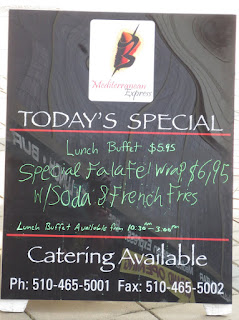 Mediterranean
Express
TODAY'S SPECIAL
Lunch Buffet $5.95
Special Falafel Wrap $6,95
w/Soda & French Fries
Lunch Buffet Available from 10.30 AM - 3.00 PM
Catering Available
Ph: 510-465-5001 Fax: 510-465-5002